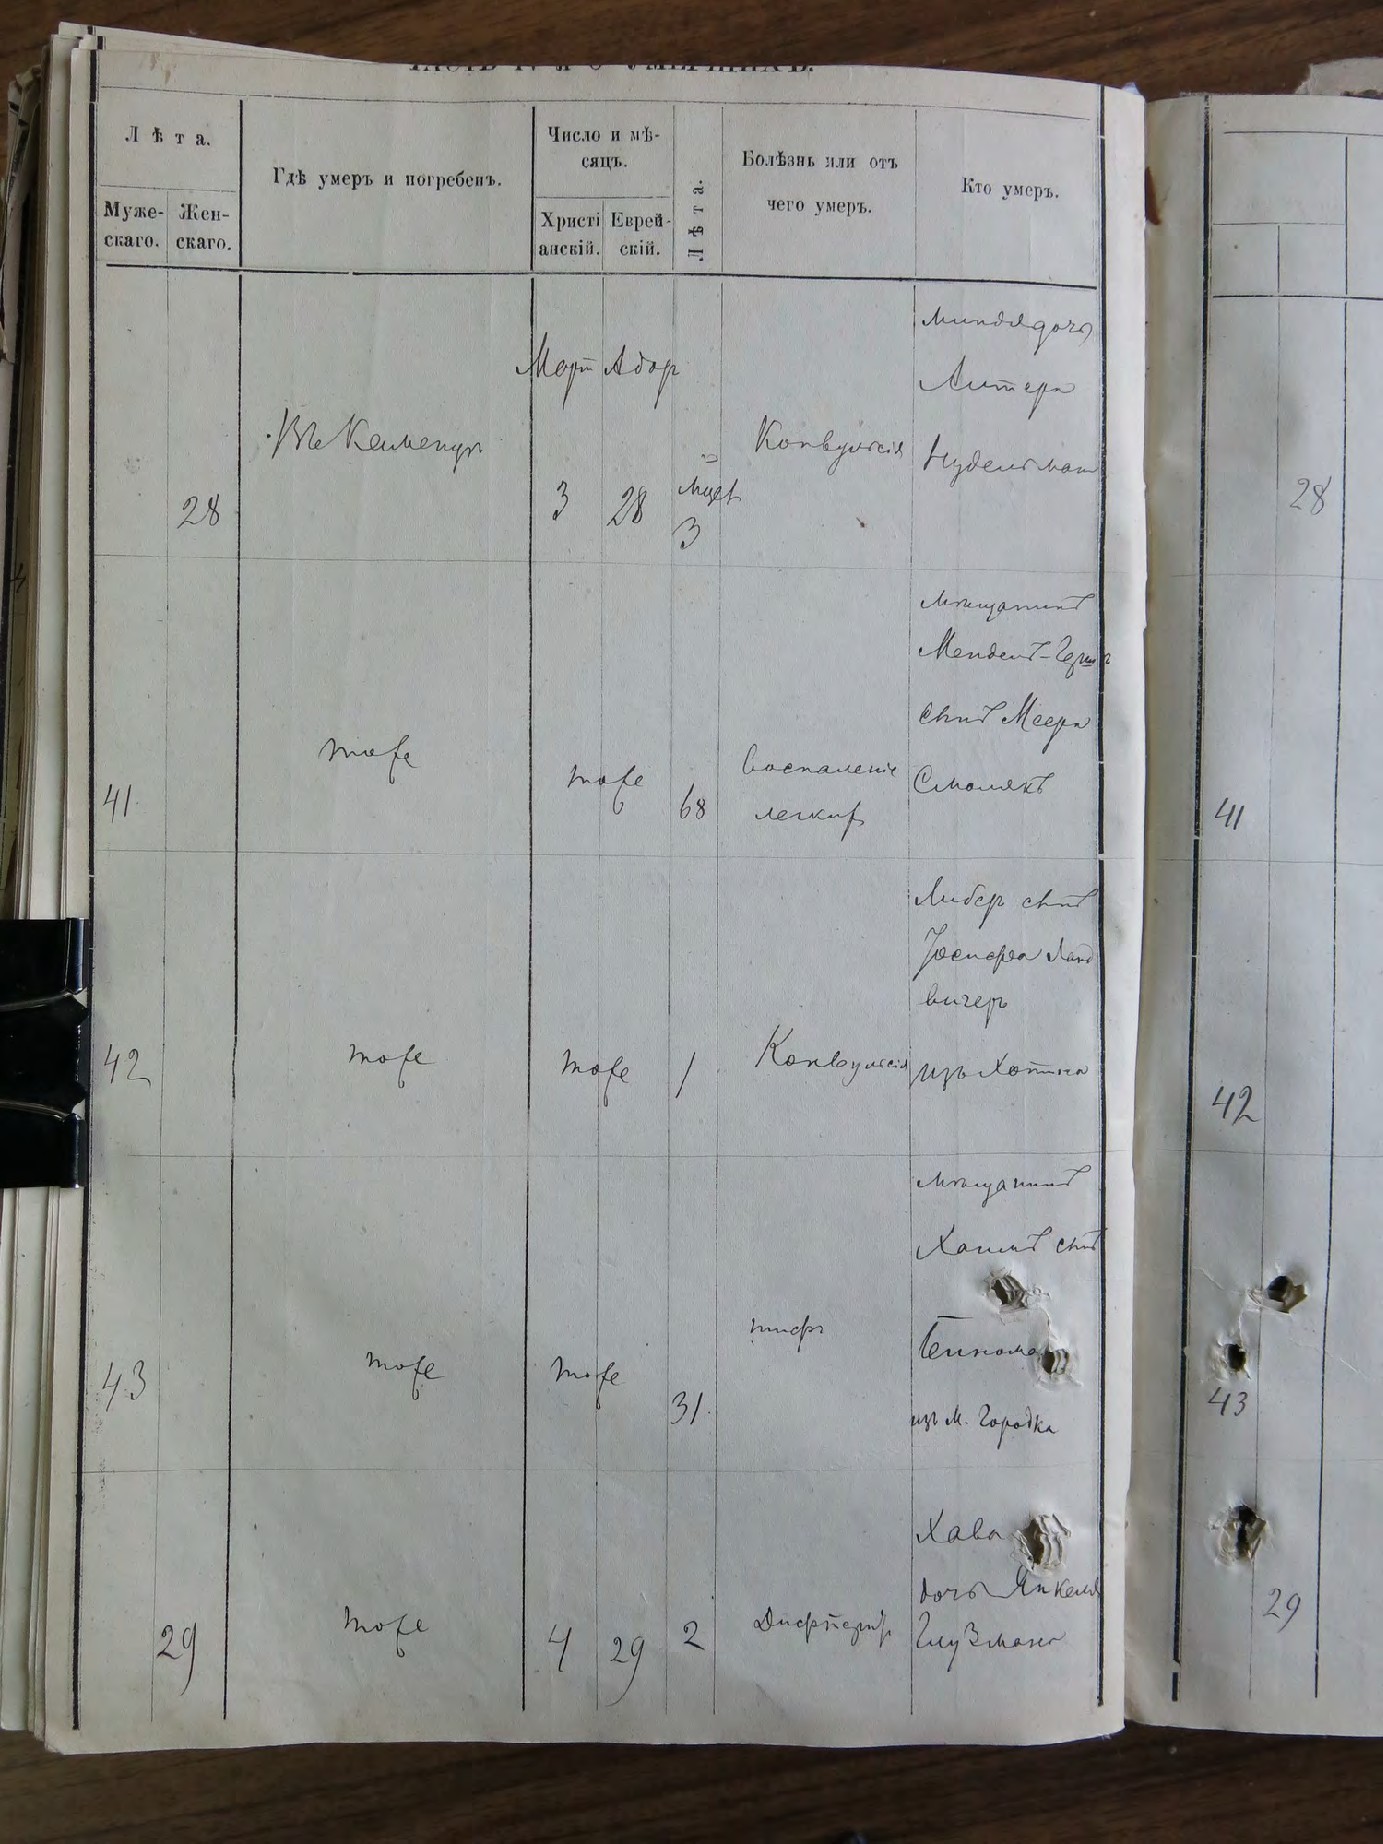 Часть IV-я о умершихъ.
Лѣта.
Муже-
скаго.
Жен-
скаго.
Гдѣ умеръ и погребенъ.
Число и мѣ-
сяцъ.
Христі
анскій.
Еврей-
скій.
Лѣта.
Болѣзнь или отъ
чего умеръ.
Кто умеръ.
28
Март Адор
3 28
3
Конвульсія
Миндля дочь
Литера
Нудельман
28
41
тоже
тоже
68
Воспаленіе
легкихъ
мѣщанинъ
Мендель-Герш
сынъ Меера
Смолякъ
41
42
тоже
тоже
1
Конвульсія
Либер сынъ
Іосифа
вигеръ
изъ Хотина
42
43
тоже
тоже
31.
тифъ
мѣщанинъ
Хаимъ сынъ
изъ М. Городка
43
29
тоже
4 29
2
Дифтеритъ
Хава
дочь Янкеля
Глузмана
29